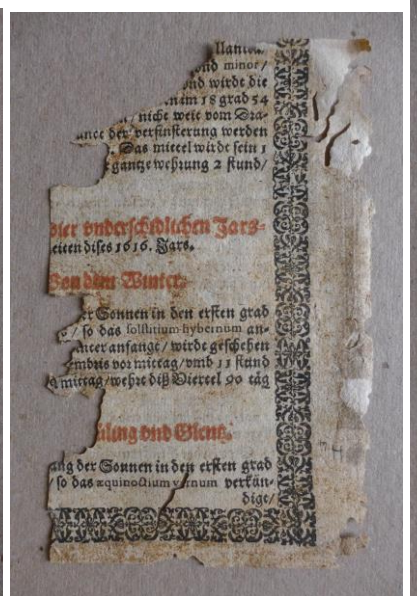 minor /
vnd wirdt die
18 grad 54
/ nicht weit vom Dra-
der verfinsterung werden
Das mittel wirdt sein 1
gantze wehrung 2 stund /
vier vnderschidlichen Jars-
zeiten dises 1616. Jars.
Von dem Winter.
der Sonnen in den ersten grad
/ so das solstitium hybernum an-
anfangt / wirdt geschehen
vor mittag / vmb 11 stund
mittag / wehrt diß Viertel 90 täg
vnd Glentz.
der Sonnen in den ersten grad
/ so das æquinoctium vernum verkün-
diget /